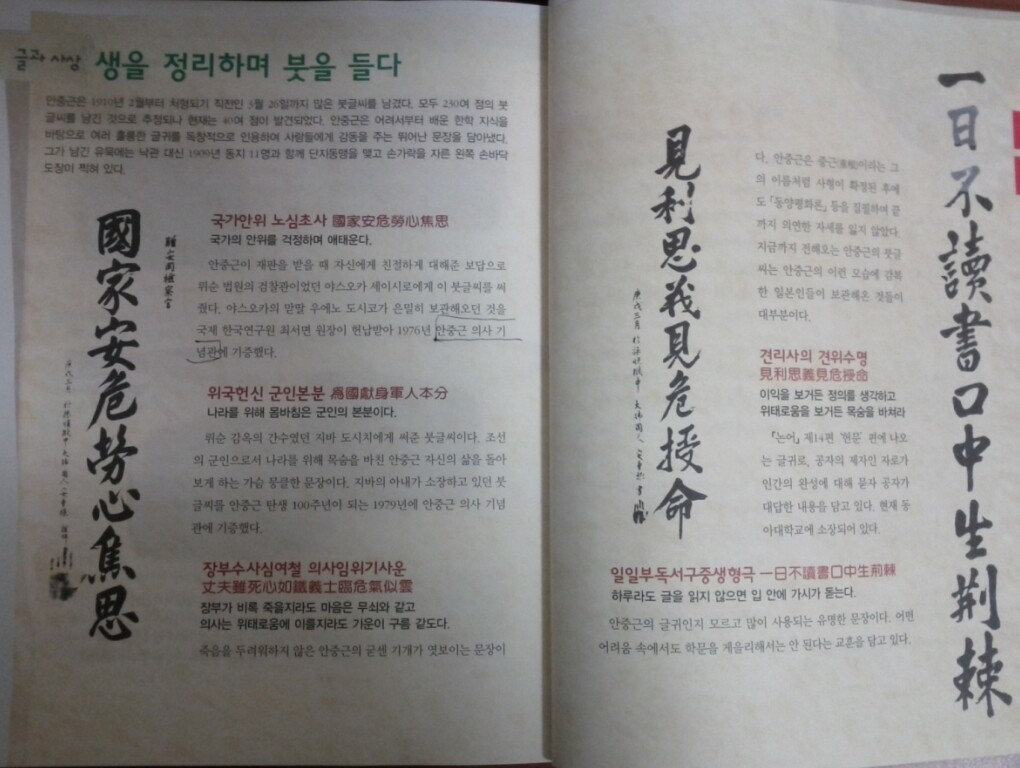 글과 사상 생을 정리하며 붓을 들다
안중근은 1910년 2월부터 처형되기 직전인 3월 26일까지 많은 붓글씨를 남겼다. 모두 230여 점의 붓
글씨를 남긴 것으로 추정되나 현재는 40여 점이 발견되었다. 안중근은 어려서부터 배운 한학 지식을
바탕으로 여러 훌륭한 글귀를 독창적으로 인용하여 사람들에게 감동을 주는 뛰어난 문장을 담아냈다.
그가 남긴 유묵에는 낙관 대신 1909년 동지 11명과 함께 단지동맹을 맺고 손가락을 자른 왼쪽 손바닥
도장이 찍혀 있다.
國家安危勞心焦思
국가안위 노심초사 國家安危勞心焦思
국가의 안위를 걱정하며 애태운다.
안중근이 재판을 받을 때 자신에게 친절하게 대해준 보답으로
뤼순 법원의 검찰관이었던 야스오카 세이시로에게 이 붓글씨를 써
줬다. 야스오카의 맏딸 우에노 도시코가 은밀히 보관해오던 것을
국제 한국연구원 최서면 원장이 헌납받아 1976년 안중근 의사 기
념관에 기증했다.
위국헌신 군인본분 爲國獻身軍人本分
나라를 위해 몸바침은 군인의 본분이다.
뤼순 감옥의 간수였던 지바 도시치에게 써준 붓글씨이다. 조선
의 군인으로서 나라를 위해 목숨을 바친 안중근 자신의 삶을 돌아
보게 하는 가슴 뭉클한 문장이다. 지바의 아내가 소장하고 있던 붓
글씨를 안중근 탄생 100주년이 되는 1979년에 안중근 의사 기념
관에 기증했다.
장부수사심여철 의사임위기사운
丈夫雖死心如鐵義士臨危氣似雲
장부가 비록 죽을지라도 마음은 무쇠와 같고
의사는 위태로움에 이를지라도 기운이 구름 같도다.
죽음을 두려워하지 않은 안중근의 굳센 기개가 엿보이는 문장이
見利思義見危授命
다. 안중근은 중근(重根)이라는 그
의 이름처럼 사형이 확정된 후에
도 「동양평화론」 등을 집필하며 끝
까지 의연한 자세를 잃지 않았다.
지금까지 전해오는 안중근의 붓글
씨는 안중근의 이런 모습에 감복
한 일본인들이 보관해온 것들이
대부분이다.
견리사의 견위수명
見利思義見危授命
이익을 보거든 정의를 생각하고
위태로움을 보거든 목숨을 바쳐라
『논어』 제14편 '헌문' 편에 나오
는 글귀로, 공자의 제자인 자로가
인간의 완성에 대해 묻자 공자가
대답한 내용을 담고 있다. 현재 동
아대학교에 소장되어 있다.
일일부독서구중생형극 一日不讀書口中生荊棘
하루라도 글을 읽지 않으면 입 안에 가시가 돋는다.
안중근의 글귀인지 모르고 많이 사용되는 유명한 문장이다. 어떤
어려움 속에서도 학문을 게을리해서는 안 된다는 교훈을 담고 있다.
一日不讀書口中生荊棘